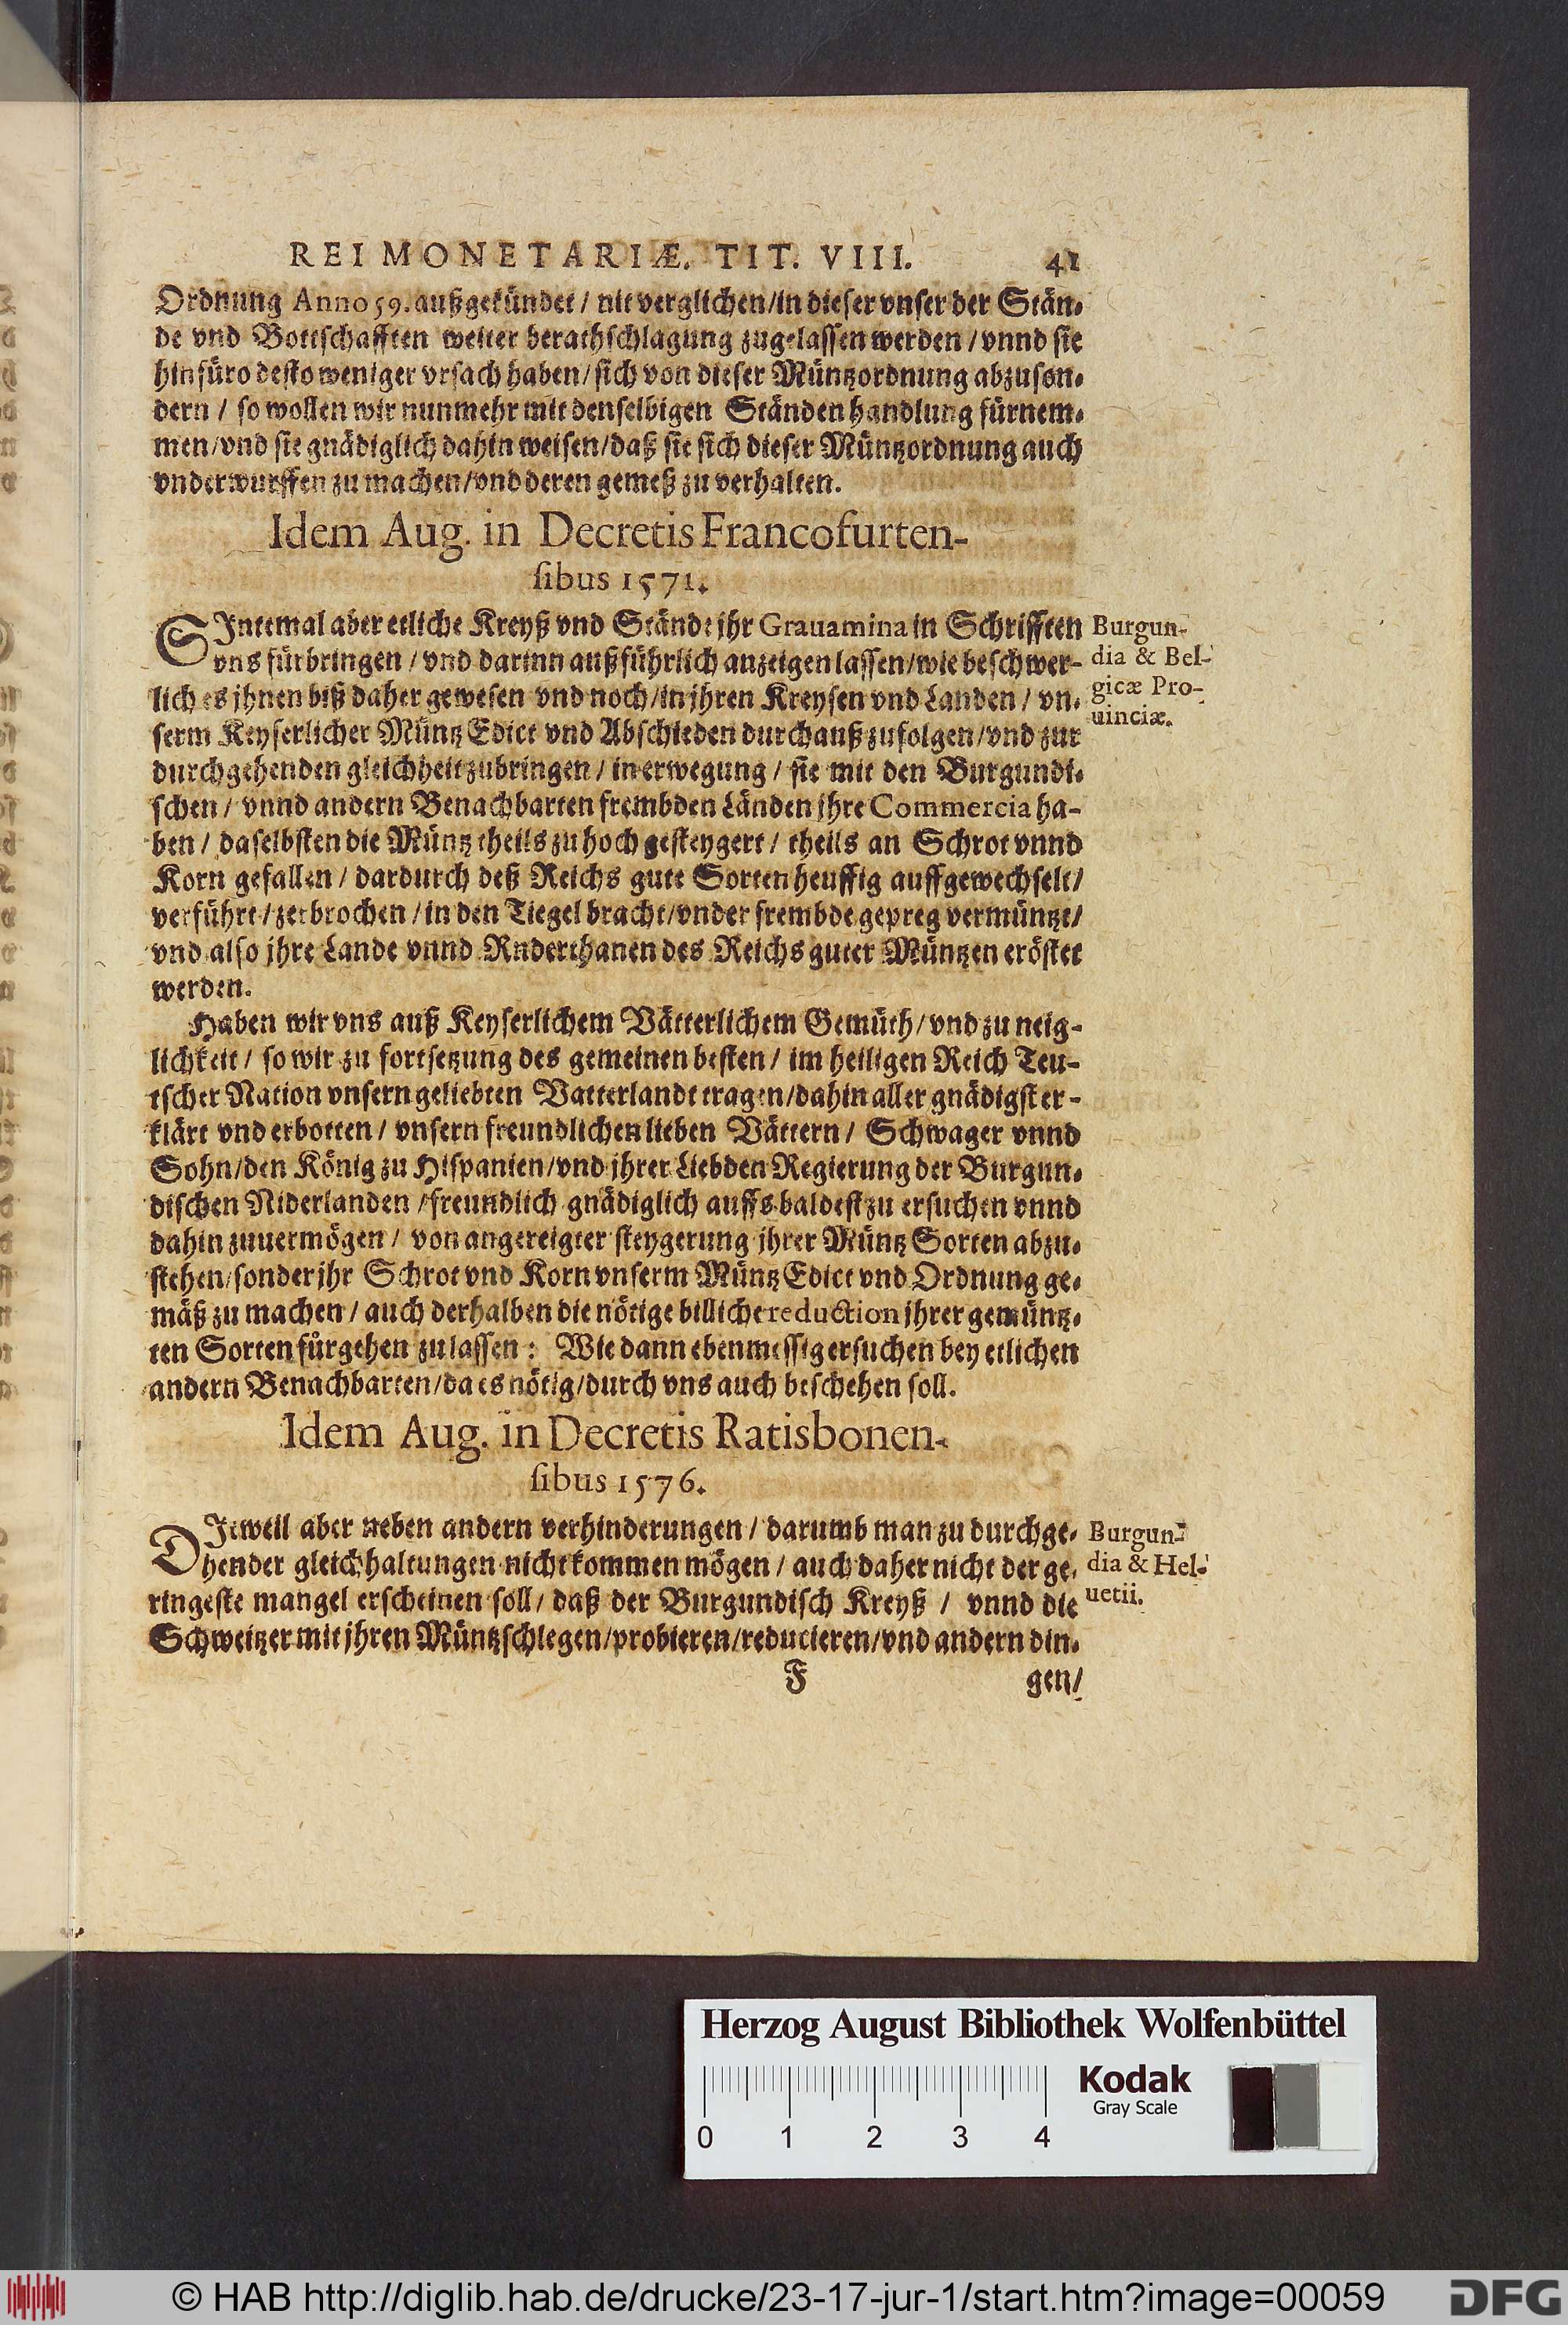 REI MONETARIÆ. TIT. VIII. 41
Ordnung Anno 59. außgekündet / nit verglichen / in dieser vnser der Stän-
de vnd Bottschafften weiter berathschlagung zugelassen werden / vnnd sie
hinfüro desto weniger vrsach haben / sich von dieser Müntzordnung abzuson-
dern / so wollen wir nunmehr mit denselbigen Ständen handlung fürnem-
men / vnd sie gnädiglich dahin weisen / daß sie sich dieser Müntzordnung auch
vnderwurffen zu machen / vnd deren gemeß zu verhalten.
Idem Aug. in Decretis Francofurten-
sibus 1571.
SJntemal aber etliche Kreyß vnd Stände jhr Grauamina in Schrifften
vns fürbringen / vnd darinn außführlich anzeigen lassen / wie beschwer-
lich es jhnen biß daher gewesen vnd noch / in jhren Kreysen vnd Landen / vn-
serm Keyserlicher Müntz Edict vnd Abschieden durchauß zufolgen / vnd zur
durchgehenden gleichheit zubringen / in erwegung / sie mit den Burgundi-
schen / vnnd andern Benachbarten frembden Länden jhre Commercia ha-
ben / daselbsten die Müntz theils zu hoch gesteygert / theils an Schrot vnnd
Korn gefallen / dardurch deß Reichs gute Sorten heuffig auffgewechselt /
verführt / zerbrochen / in den Tiegel bracht / vnder frembde gepreg vermüntzt /
vnd also jhre Lande vnnd Rnderthanen des Reichs guter Müntzen eröstet
werden.
Burgun-
dia & Bel-
gicæ Pro-
uinciæ.
Haben wir vns auß Keyserlichem Vätterlichem Gemüth / vnd zu neig-
lichkeit / so wir zu fortsetzung des gemeinen besten / im heiligen Reich Teu-
tscher Nation vnsern geliebten Vatterlandt tragen / dahin aller gnädigst er-
klärt vnd erbotten / vnsern freundlichen lieben Vättern / Schwager vnnd
Sohn / den König zu Hispanien / vnd jhrer Liebden Regierung der Burgun-
dischen Niderlanden / freundlich gnädiglich auffs baldest zu ersuchen vnnd
dahin zuuermögen / von angereigter steygerung jhrer Müntz Sorten abzu-
stehen / sonder jhr Schrot vnd Korn vnserm Müntz Edict vnd Ordnung ge-
mäß zu machen / auch derhalben die nötige billiche reduction jhrer gemüntz-
ten Sorten fürgehen zu lassen : Wie dann ebenmessig ersuchen bey etlichen
andern Benachbarten / da es nötig / durch vns auch beschehen soll.
Idem Aug. in Decretis Ratisbonen-
sibus 1576.
DJeweil aber neben andern verhinderungen / darumb man zu durchge-
hender gleichhaltungen nicht kommen mögen / auch daher nicht der ge-
ringeste mangel erscheinen soll / daß der Burgundisch Kreyß / vnnd die
Schweitzer mit jhren Müntzschlegen / probieren / reducieren / vnd andern din-
Burgun-
dia & Hel-
uetii.
F gen /
Herzog August Bibliothek Wolfenbüttel
0 1 2 3 4
Kodak
Gray Scale
© HAB http://diglib.hab.de/drucke/23-17-jur-1/start.htm?image=00059
DFG